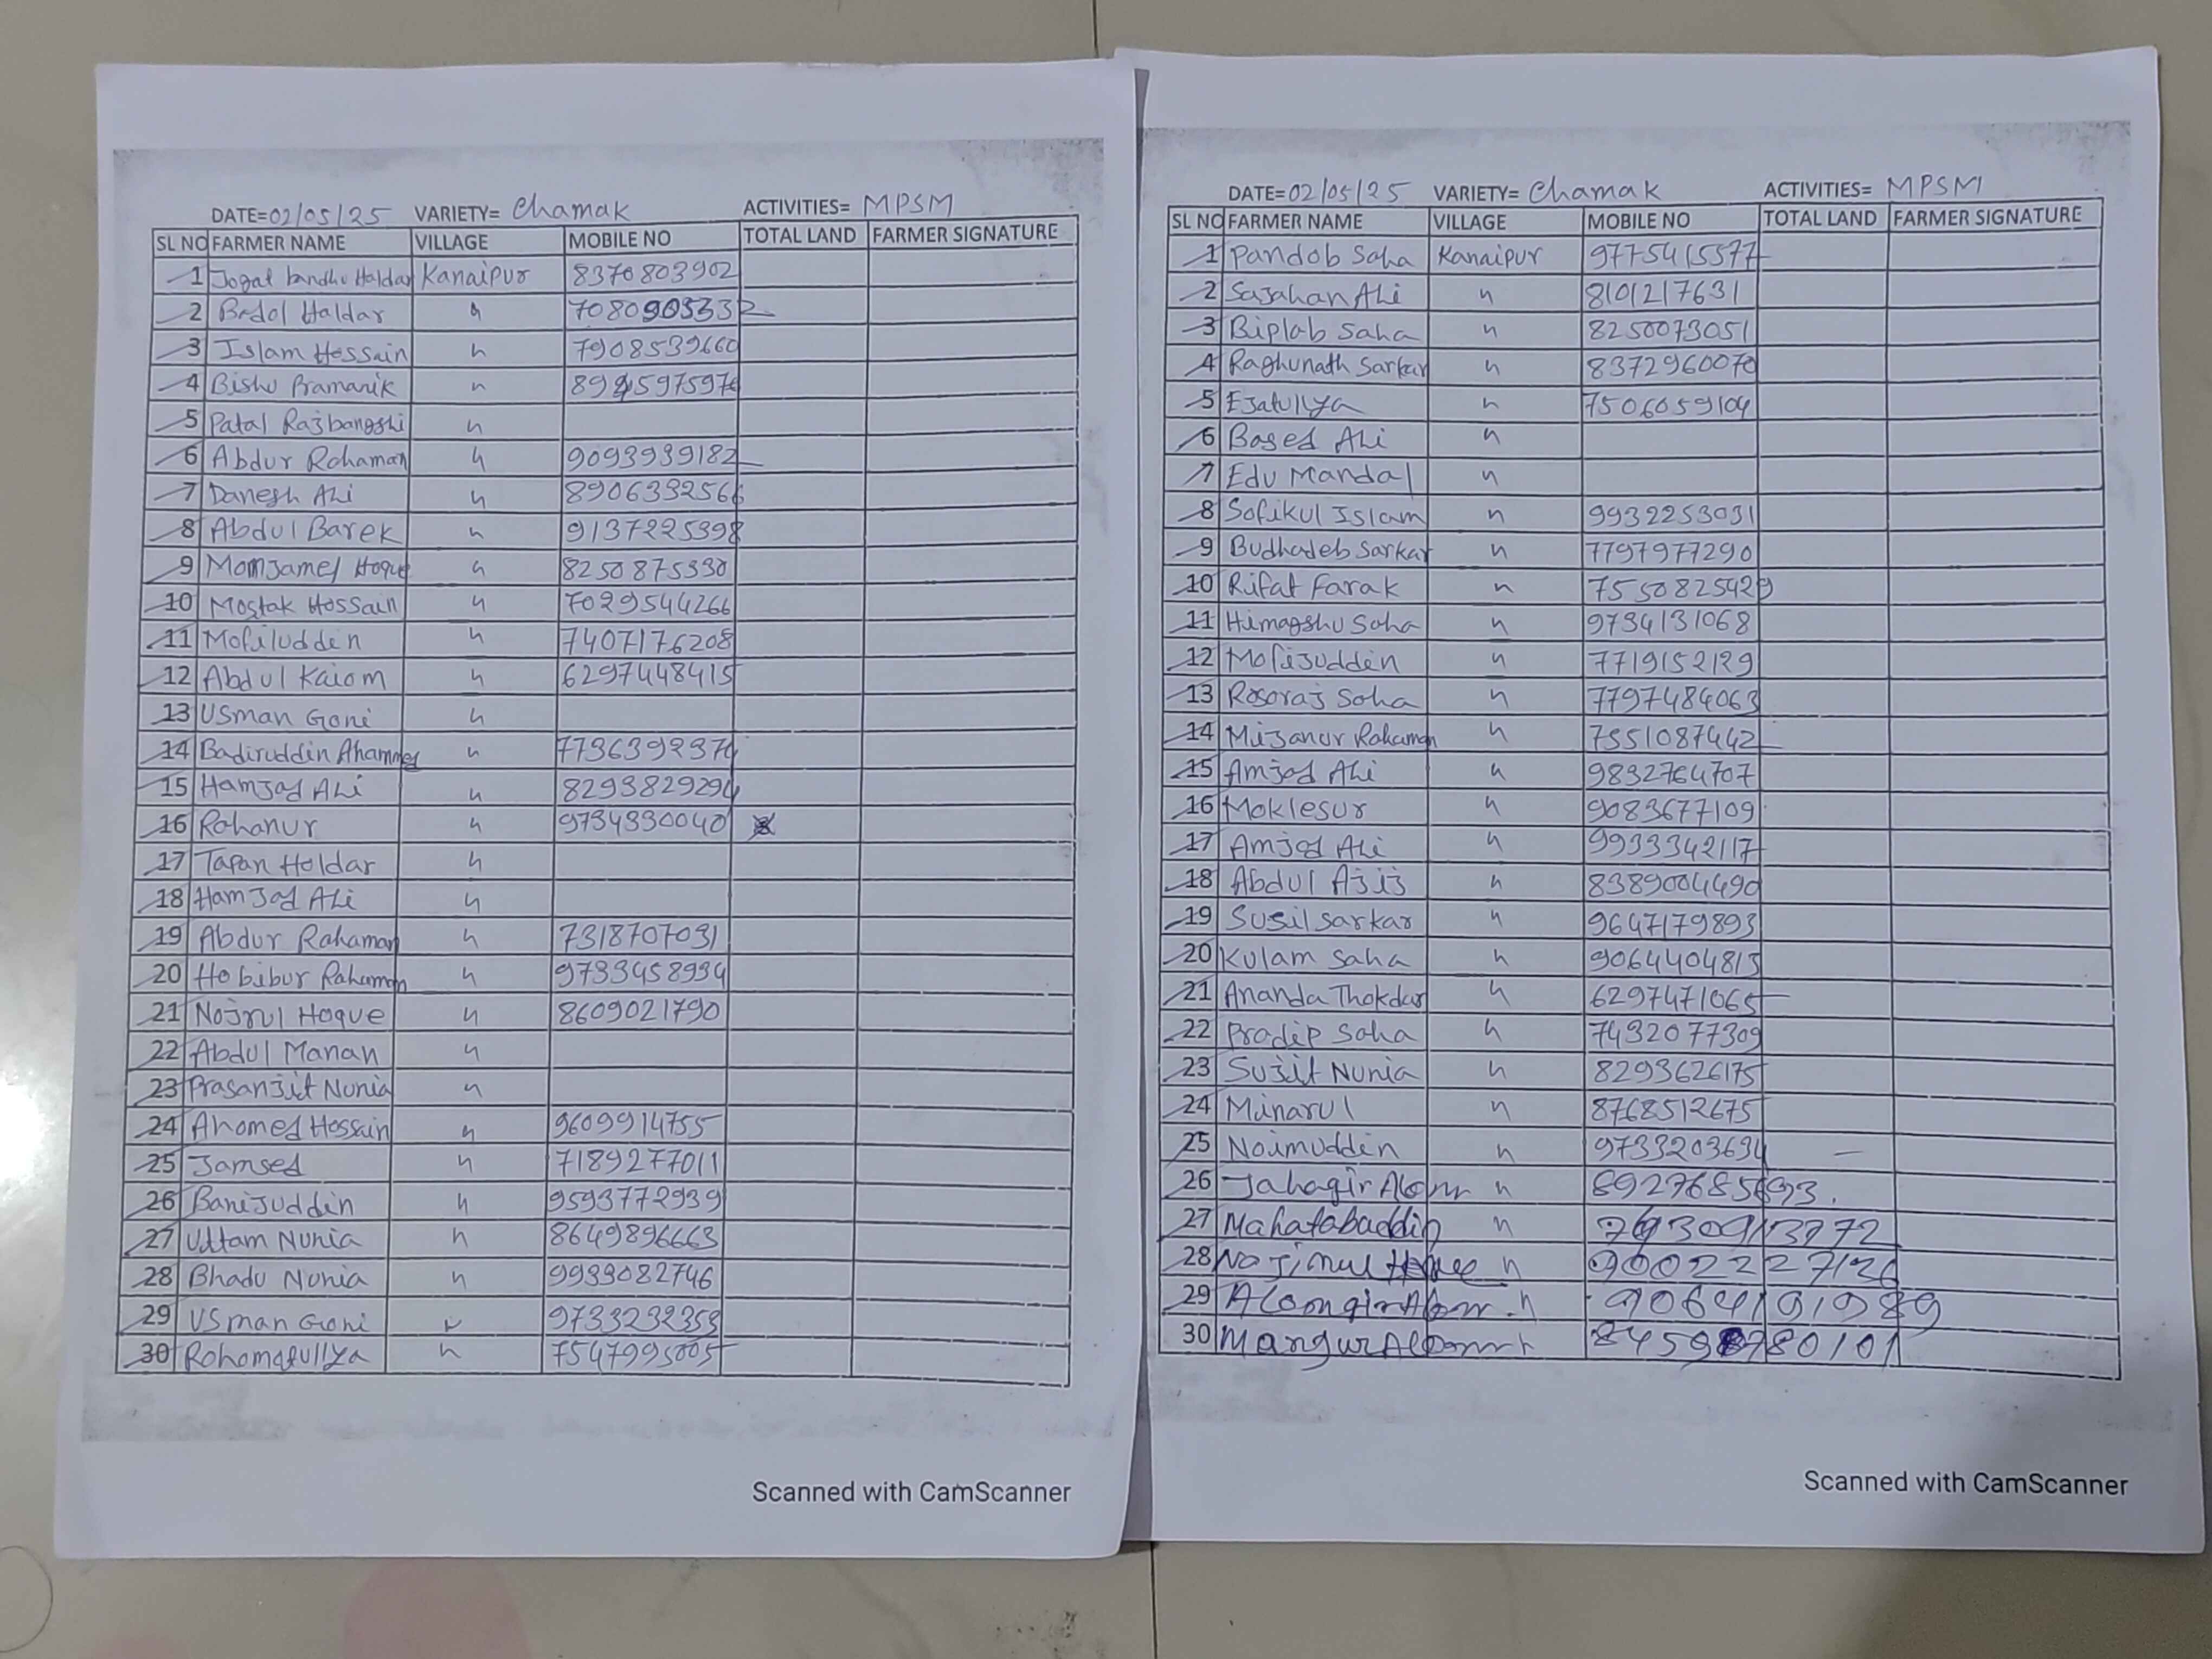 DATE=02/05/25 VARIETY= Chamak ACTIVITIES= MPSM
SL NO FARMER NAME VILLAGE MOBILE NO TOTAL LAND FARMER SIGNATURE
1 Jogal bandhu Haldar Kanaipur 8370803902
2 Badal Haldar " 7080905332
3 Islam Hossain " 7908539660
4 Bishu Pramanik "
5 Patal Rajbangshi "
6 Abdur Rahaman " 9093939182
7 Danesh Ali " 8906332566
8 Abdul Barek " 9137225398
9 Momjamel Hoque " 8250875330
10 Mostak Hossain " 7029544266
11 Mofiluddin " 7407176208
12 Abdul Kaiom " 6297448415
13 Usman Goni "
14 Badiruddin Ahammed " 7736392374
15 Hamjad Ali " 8293829294
16 Rahanur " 9734330040
17 Tapan Holdar "
18 Hamjad Ali "
19 Abdur Rahaman " 7318707031
20 Hobibur Rahaman " 9733458934
21 Nojrul Hoque " 8609021790
22 Abdul Manan "
23 Prasanjit Nunia "
24 Ahomed Hossain " 9609914755
25 Jamsed " 7189277011
26 Banijuddin " 9593772939
27 Uttam Nunia " 8649896663
28 Bhadu Nunia " 9933082746
29 Usman Goni " 9733232353
30 Rohomatullya " 7547995005
Scanned with CamScanner
DATE=02/05/25 VARIETY= Chamak ACTIVITIES= MPSM
SL NO FARMER NAME VILLAGE MOBILE NO TOTAL LAND FARMER SIGNATURE
1 Pandob Saha Kanaipur 9775415577
2 Sajahan Ali " 8101217631
3 Biplab Saha " 8250073051
4 Raghunath Sarkar " 8372960070
5 Ejatullya " 7506059104
6 Based Ali "
7 Edu Mandal "
8 Sofikul Islam " 9932253031
9 Budhadeb Sarkar " 7797977290
10 Rifat Farak " 7550825429
11 Himagshu Saha " 9734131068
12 Mofijuddin " 7719152129
13 Rosoraj Soha " 7797484063
14 Mijanur Rahaman " 7551087442
15 Amjad Ali " 9832764707
16 Moklesur " 9083677109
17 Amjad Ali " 9933342117
18 Abdul Ajij " 8389004490
19 Susil Sarkar " 9647179893
20 Kulam Saha " 9064404815
21 Ananda Thokdar " 6297471065
22 Pradip Saha " 7432077309
23 Sujit Nunia " 8293626175
24 Minarul " 8768512675
25 Noimuddin " 9733203634 —
26 Jahagir Alom "
27 Mahatabuddin "
28 Najimul Hoque "
29 Alomgir Alom " 9064191989
30 Mangur Alom "
Scanned with CamScanner